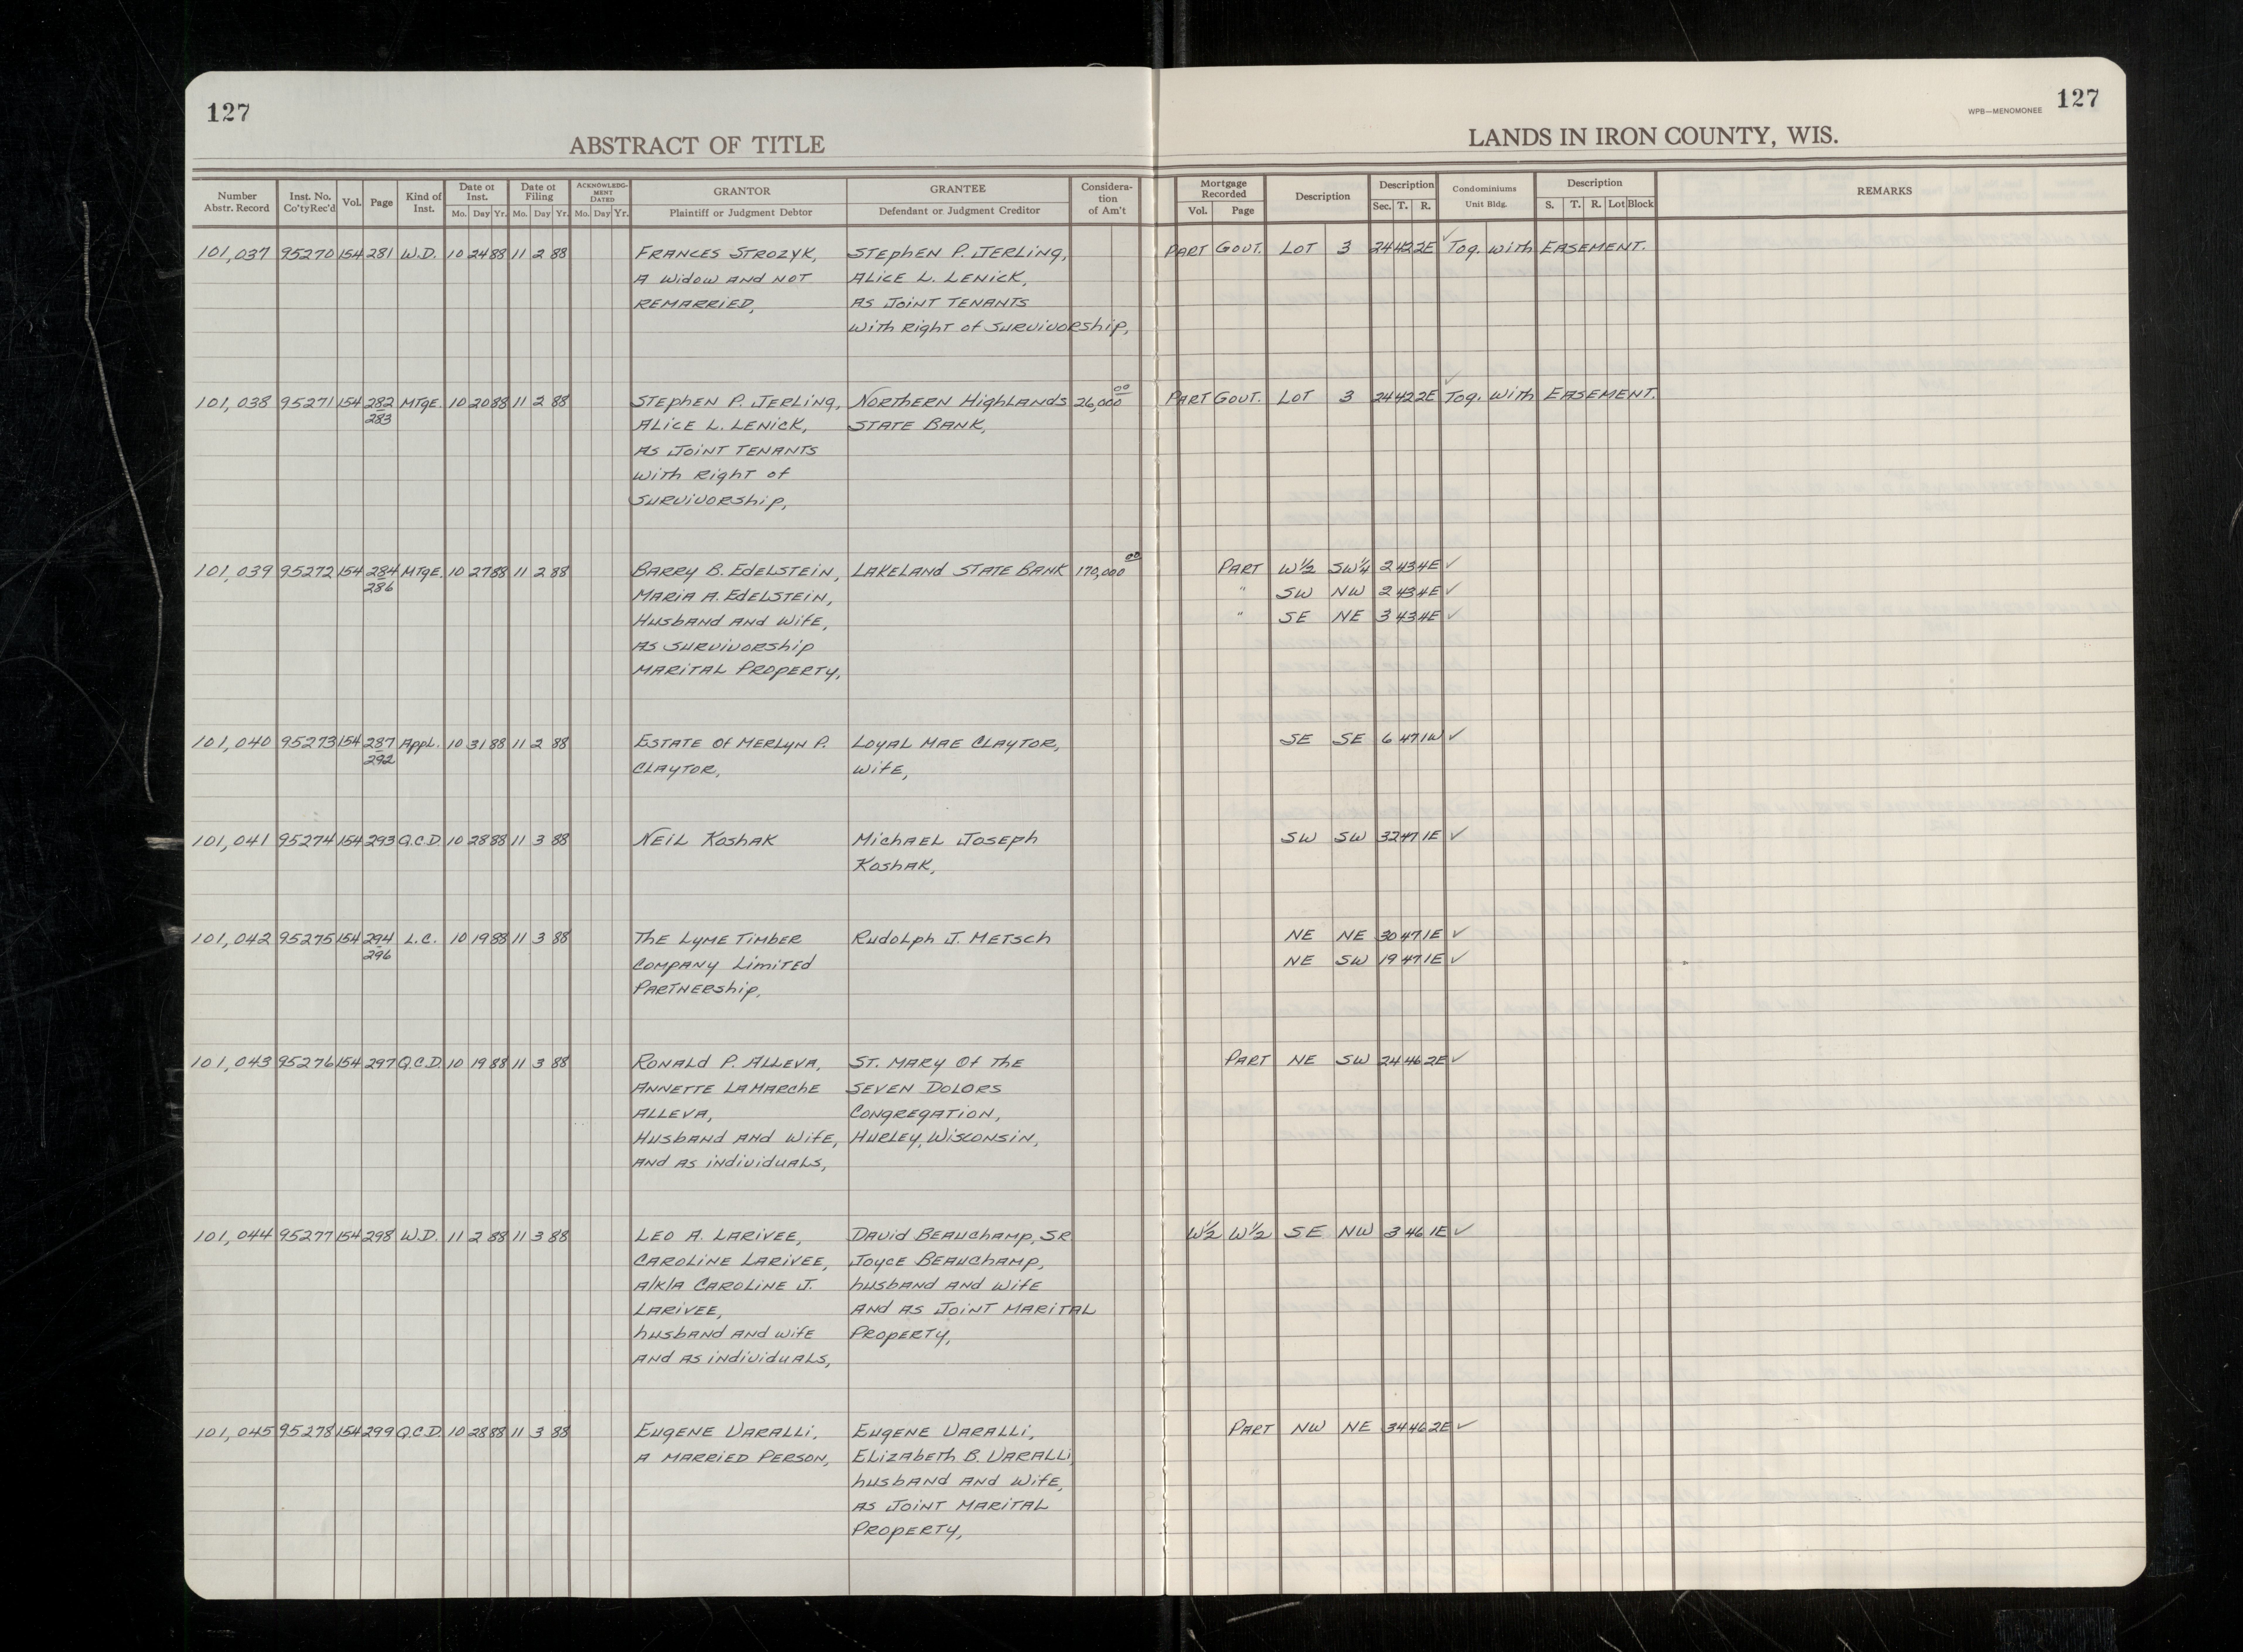 127
ABSTRACT OF TITLE
WPB—MENOMONEE 127
LANDS IN IRON COUNTY, WIS.
Number Abstr. Record Inst. No. Co'tyRec'd Vol. Page Kind of Inst. Date of Inst. Mo. Day Yr. Date of Filing Mo. Day Yr. ACKNOWLEDGMENT DATED Mo. Day Yr. GRANTOR Plaintiff or Judgment Debtor GRANTEE Defendant or Judgment Creditor Considera-tion of Am't Mortgage Recorded Vol. Page Description Description Sec. T. R. Condominiums Unit Bldg. Description S. T. R. Lot Block REMARKS
101,037 95270 154 281 W.D. 10 24 88 11 2 88 FRANCES STROZYK, STEPHEN P. JERLING, PART GOVT. LOT 3 24 42 2E ✓ Tog. with EASEMENT.
A widow AND NOT ALICE L. LENICK,
REMARRIED, AS JOINT TENANTS
with Right of SURVIVORship,
101,038 95271 154 282 MTGE. 10 20 88 11 2 88 STEPHEN P. JERLING, NORTHERN HIGHLANDS 26,000 00 PART GOVT. LOT 3 24 42 2E ✓ Tog. with EASEMENT.
283 ALICE L. LENICK, STATE BANK,
AS JOINT TENANTS
with Right of
SURVIVORship,
101,039 95272 154 284 MTGE. 10 27 88 11 2 88 BARRY B. EDELSTEIN, LAKELAND STATE BANK 170,000 00 PART W½ SW¼ 2 43 4E ✓
286 MARIA A. EDELSTEIN, " SW NW 2 43 4E ✓
HUSBAND AND WIFE, " SE NE 3 43 4E ✓
AS SURVIVORship
MARITAL PROPERTY,
101,040 95273 154 287 Appl. 10 31 88 11 2 88 ESTATE Of MERLYN P. LOYAL MAE CLAYTOR, SE SE 6 47 1W ✓
292 CLAYTOR, WIFE,
101,041 95274 154 293 Q.C.D. 10 28 88 11 3 88 NEIL KOSHAK MICHAEL JOSEPH SW SW 32 47 1E ✓
KOSHAK,
101,042 95275 154 294 L.C. 10 19 88 11 3 88 THE LYME TIMBER RUDOLPH J. METSCH NE NE 30 47 1E ✓
296 COMPANY LIMITED NE SW 19 47 1E ✓
PARTNERship,
101,043 95276 154 297 Q.C.D. 10 19 88 11 3 88 RONALD P. ALLEVA, ST. MARY Of THE PART NE SW 24 46 2E ✓
ANNETTE LAMARCHE SEVEN DOLORS
ALLEVA, CONGREGATION,
HUSBAND AND WIFE, HURLEY, WISCONSIN,
AND AS individuALS,
101,044 95277 154 298 W.D. 11 2 88 11 3 88 LEO A. LARIVEE, DAVID BEAUCHAMP, SR W½ W½ SE NW 3 46 1E ✓
CAROLINE LARIVEE, JOYCE BEAUCHAMP,
A/K/A CAROLINE J. husband AND WIFE
LARIVEE, AND AS JOINT MARITAL
husband AND WIFE PROPERTY,
AND AS individuALS,
101,045 95278 154 299 Q.C.D. 10 28 88 11 3 88 EUGENE VARALLI, EUGENE VARALLI, PART NW NE 34 46 2E ✓
A MARRIED PERSON, ELIZABETH B. VARALLI,
husband AND WIFE,
AS JOINT MARITAL
PROPERTY,